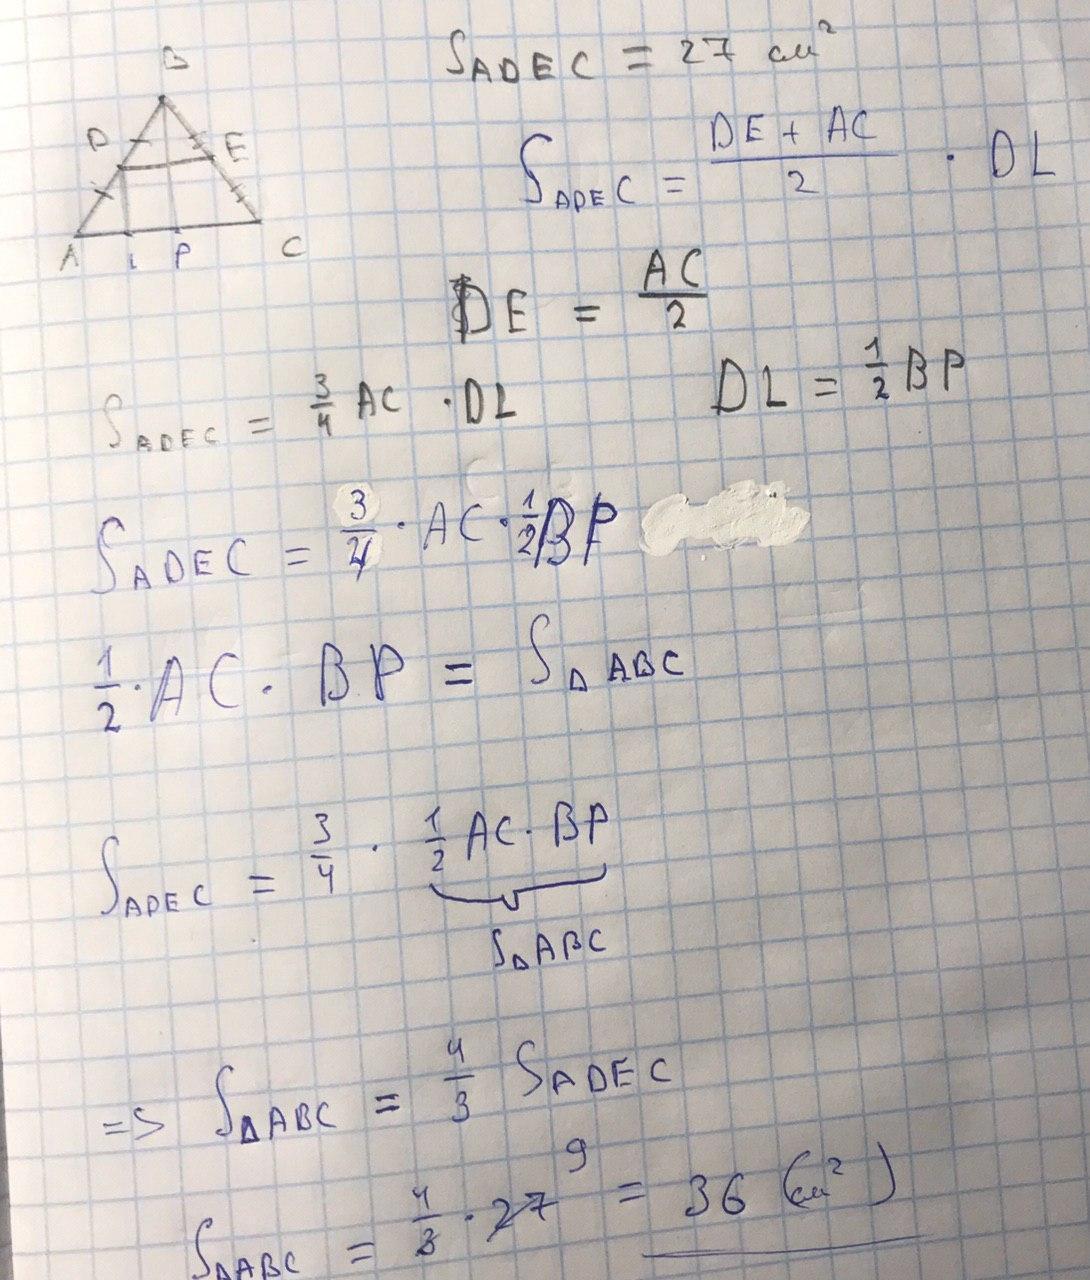 B
S ADEC = 27 см²
D E
S ADEC = (DE + AC)/2 · DL
A L P C
DE = AC/2
S ADEC = 3/4 AC · DL DL = 1/2 BP
S ADEC = 3/4 · AC · 1/2 BP
1/2 · AC · BP = S Δ ABC
S ADEC = 3/4 · 1/2 AC · BP
S Δ ABC
=> S Δ ABC = 4/3 S ADEC
S Δ ABC = 4/3 · 27 9 = 36 (см²)